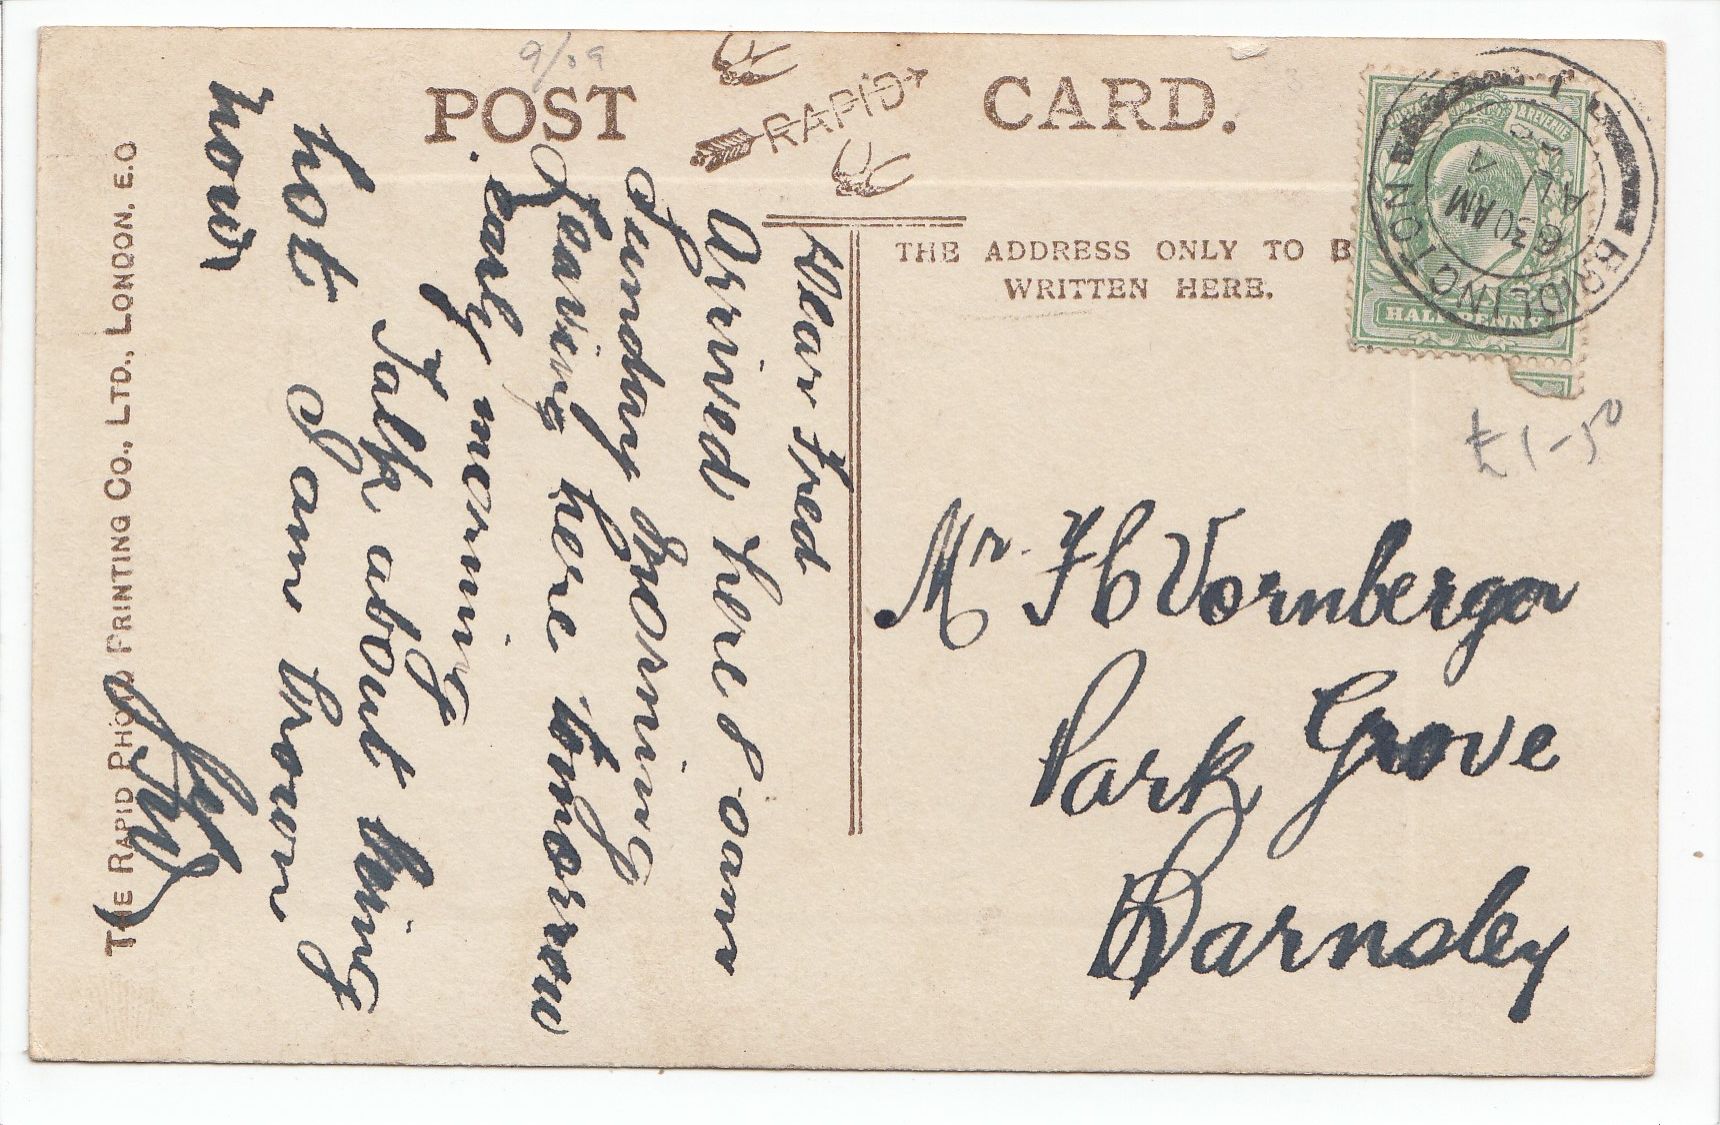 POST CARD.
RAPID
THE ADDRESS ONLY TO B
WRITTEN HERE.
POSTAGE & REVENUE
HALFPENNY
BRIDLINGTON
6 30 AM
AU 6
9/09
£1-50
Mr. F C Vornberger
Park Grove
Barnsley
Dear Fred
Arrived here 8 oam
Sunday Morning
Leaving here tomorrow
early morning
Talk about being
hot I am brown
now
THE RAPID PHOTO PRINTING CO., LTD., LONDON, E.C.